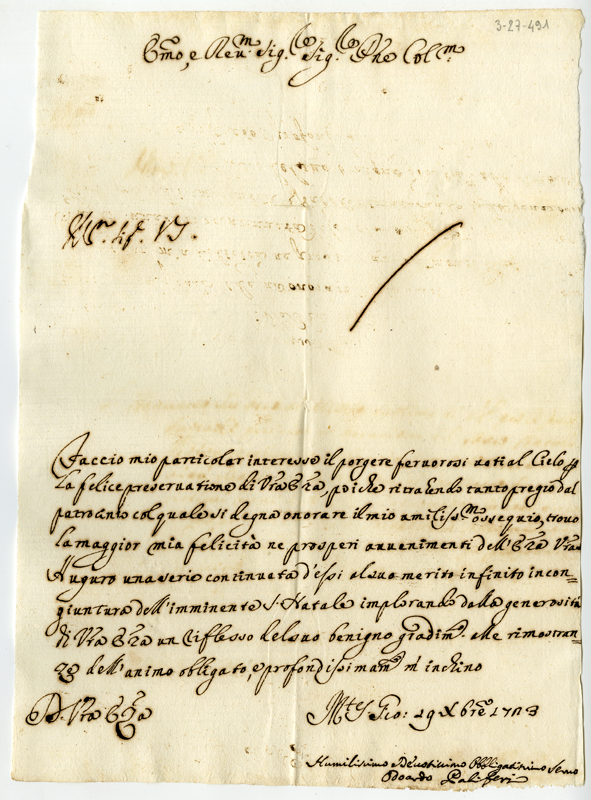 3-27-491
Emo, e Reu.m Sig.re Sig.re Pne Col.m
Faccio mio particolar interesse il porgere feruorosi uoti al Cielo p
la felice preseruatione di Vra Eza, poiche ritrahendo tanto pregio dal
patrocinio col quale si degna onorare il mio umiliss.mo ossequio, trouo
la maggior mia felicità ne prosperi auuenimenti dell' Eza Vra
Auguro una serie continuata d'essi al suo merito infinito in con=
giuntura dell' imminente S. Natale implorando dalla generosità
di Vra Eza un riflesso del suo benigno gradim.to alle rimostran=
ze dell' animo obligato, e profondissimam.te m' inchino
D. Vra Eza
29 Xbre 1703
Humilissimo Deuotissimo Obbligatissimo Seruo
Odoardo